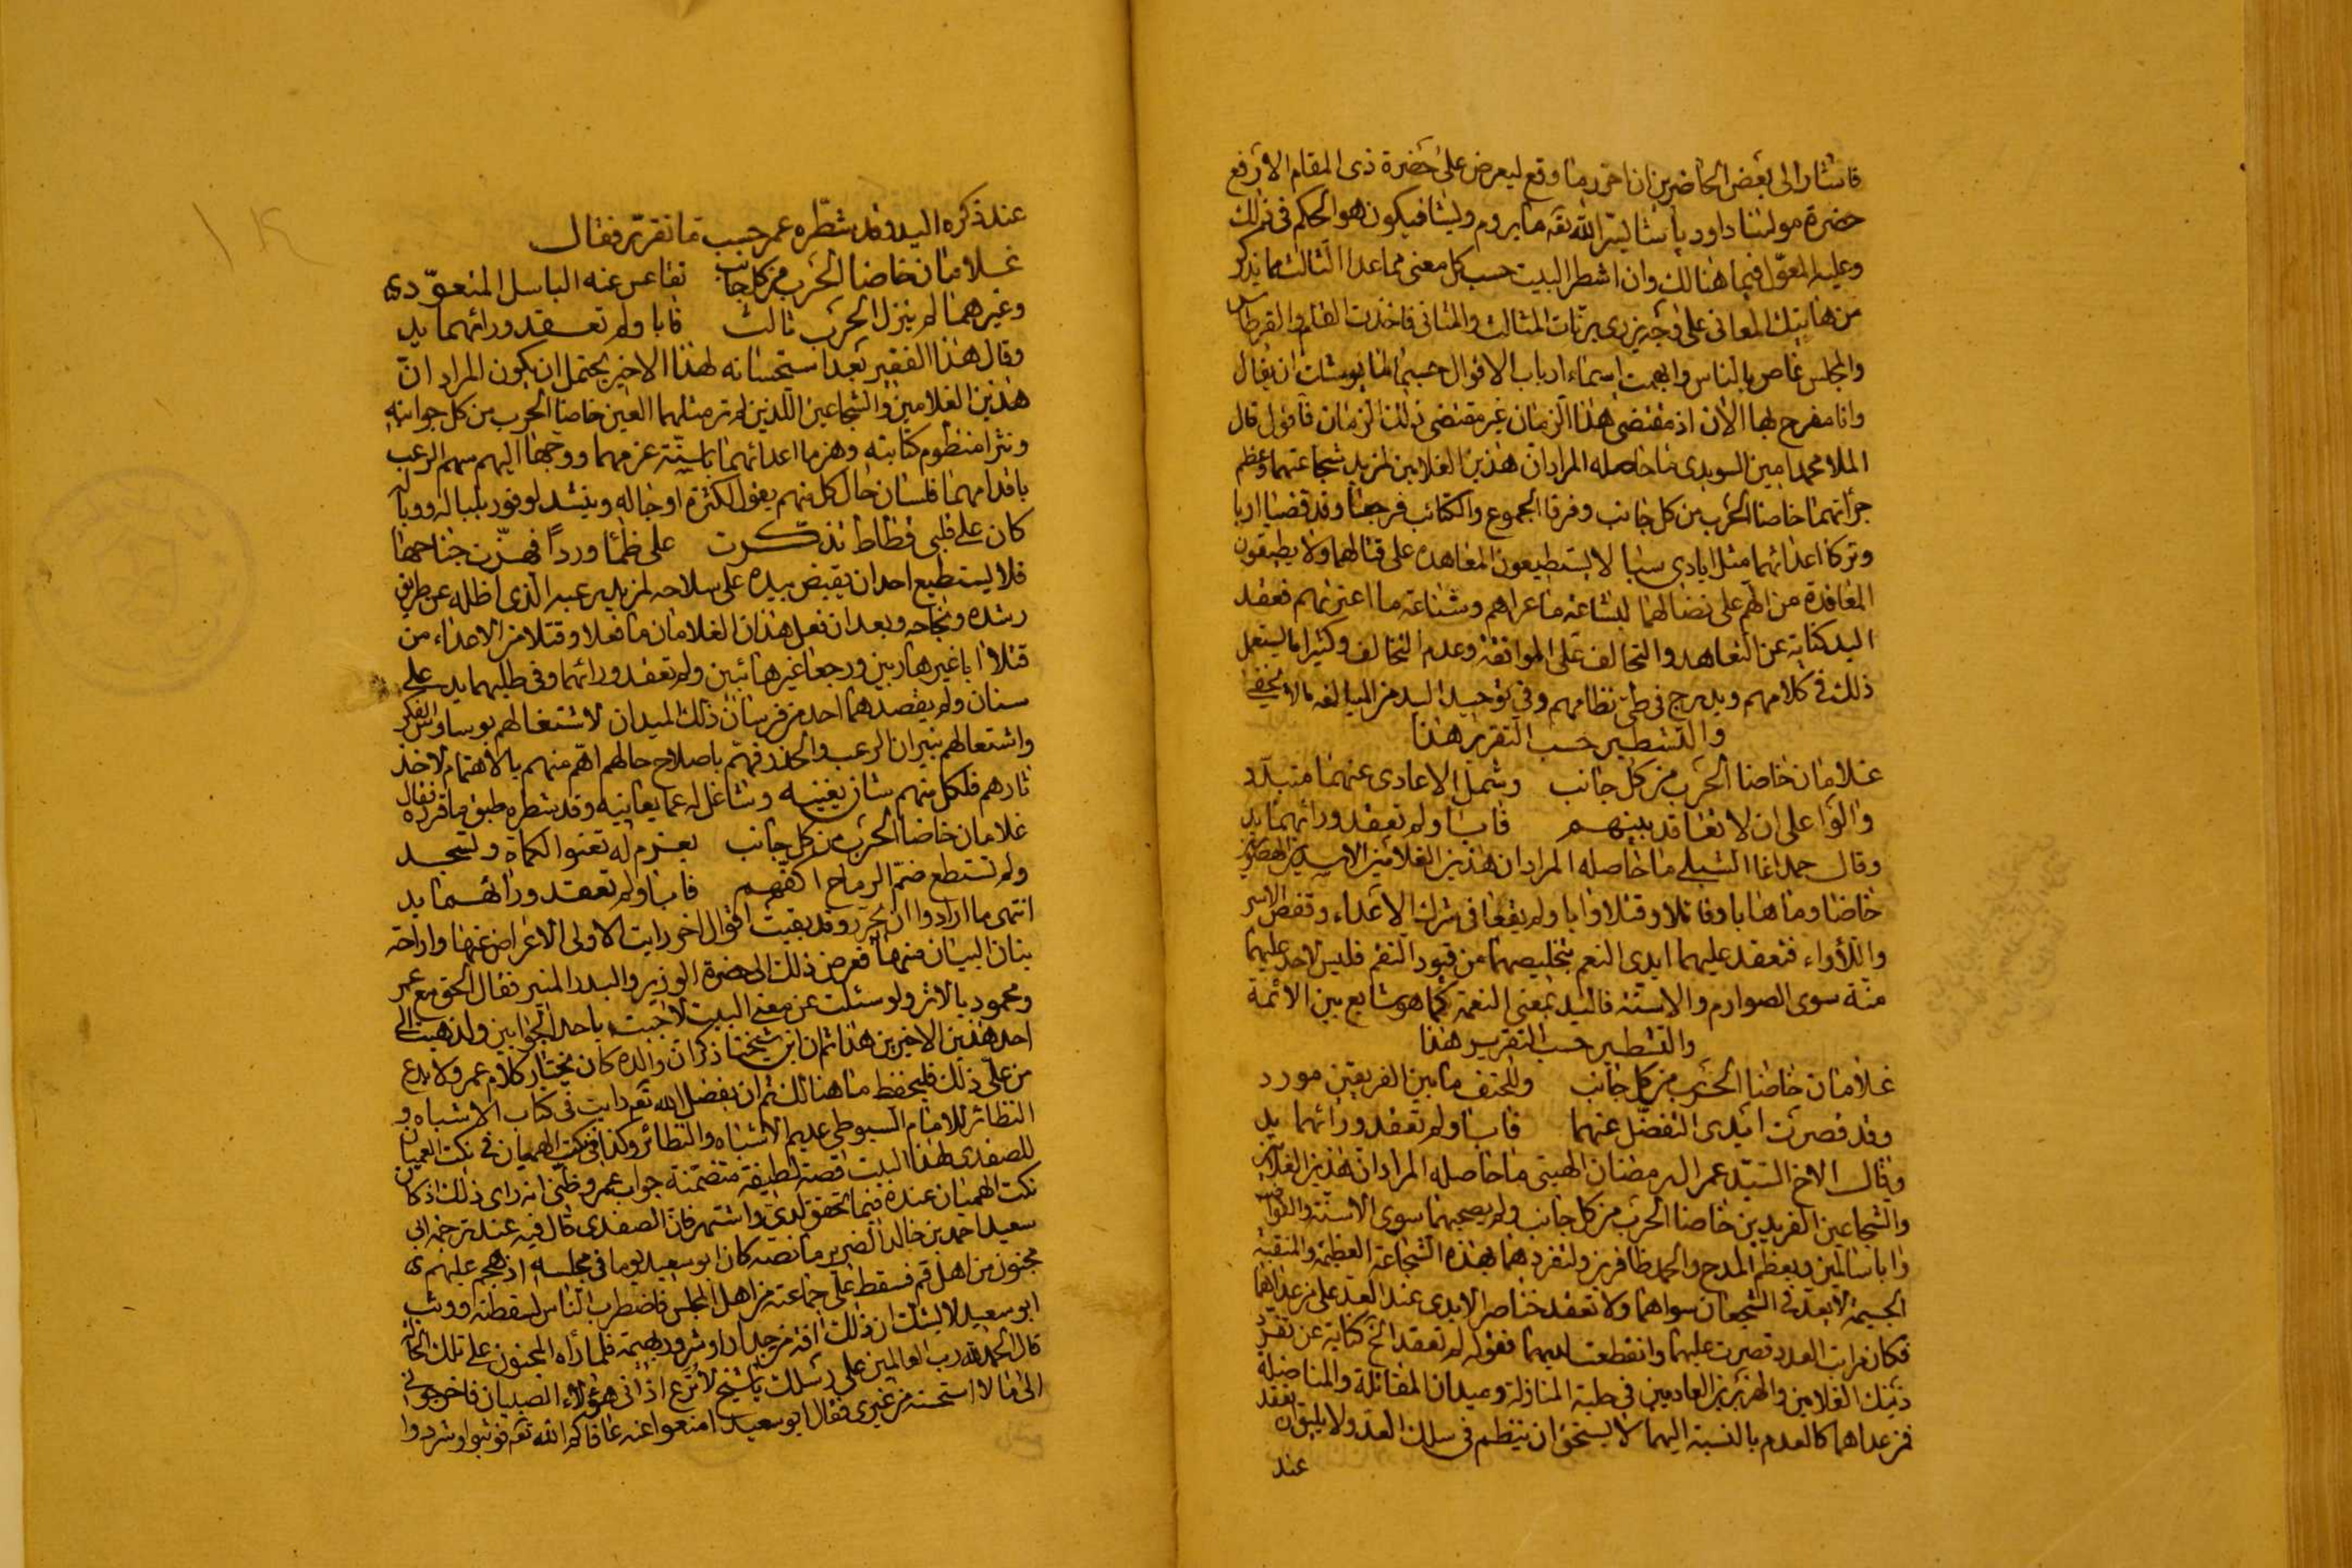 فاشار الى بعض الحاضرين ان احرر ما وقع ليعرض على حضرة ذى المقام الارفع
حضرة مولىنا داود باشا يسر الله تعه ما يروم ويشا فيكون هو الحكم فى ذلك
وعليه المعوّل فيما هنالك وان اشطر البيت حسب كل معنى مما عدا الثالث مما يذكر
من هاتيك المعانى على وجه يزرى برنات المثالث والمثانى فاخذت القلم والقرطاس
والمجلس غاص بالناس وابهمت اسماء ارباب الاقوال حسبما
وانا مفرح بها الان اذ مقتضى هذا الزمان غير مقتضى ذلك الزمان فاقول قال
الملا محمد امين السويدى ما حاصله المراد ان هذين الغلامين لمزيد شجاعتهما وعظم
جرأتهما خاضا الحرب من كل جانب وفرقا الجموع والكتائب فرجعا وقد قضيا اربا
وتركا اعدائهما مثل ايادى سبا لا يستطيعون المعاهدة على قتالهما ولا يطيقون
المعاقدة من الهم على نضالهما لبشاعة ما عراهم وشناعة ما اعتراهم فعقد
اليد كناية عن التعاهد والتحالف على الموافقة وعدم التخالف وكثيرا ما يستعمل
ذلك فى كلامهم ويدرج فى طى نظامهم وفى توحيد اليد من المبالغة ما لا يخفى
والتشطير حسب التقرير هذا
غلامان خاضا الحرب من كل جانب وشمل الاعادى عنهما متبدّد
وآلوا على ان لا تعاقد بينهم فآبا ولم تعقد ورائهما يد
وقال حمد اغا الشبلى ما حاصله المراد ان هذين الغلامين الاسدين الهصورين
خاضا وما هابا وقاتلا وقتلا وآبا ولم يقعا فى شرك الاعداء وقفص الاسر
واللأواء فتعقد عليهما ايدى النعم بتخليصهما من قيود النقم فليس لاحد عليهما
منّة سوى الصوارم والاسنّة فاليد بمعنى النعمة كما هو شايع بين الائمة
والتشطير حسب التقرير هذا
غلامان خاضا الحرب من كل جانب وللحتف ما بين الفريقين مورد
وقد قصرت ايدى التفضّل عنهما فآبا ولم تعقد ورائهما يد
وقال الاخ السيّد عمر الرمضان الهيتى ما حاصله المراد ان هذين الغلامين
والشجاعين الفريدين خاضا الحرب من كل جانب ولم يصحبهما سوى الاسنّة والقواضب
وآبا سالمين وبعظم المدح والحمد ظافرين ولتفردهما بهذه الشجاعة العظيمة والمنقبة
الجسيمة لا يعد فى الشجعان سواهما ولا تعقد خناصر الايدى عند العد على من عداهما
فكان مراتب العدد قصرت عليهما وانقطعت لديهما فقوله لم تعقد الخ كناية عن تفرد
ذينك الغلامين والهزبرين العاديين فى حلبة المنازلة وميدان المقاتلة والمناضلة
فمن عداهما كالعدم بالنسبة اليهما لا يستحق ان ينتظم فى سلك العد ولا يليق ان يعقد
عند
عند ذكره اليد وقد شطّره عمر حسب ما تقرّر فقال
غلامان خاضا الحرب من كل جانب تقاعس عنه الباسل المتعوّدى
وغيرهما لم ينزل الحرب ثالث فآبا ولم تعقد ورائهما يد
وقال هذا الفقير بعد استحسانه لهذا الاخير يحتمل ان يكون المراد انّ
هذين الغلامين والشجاعين اللذين لم تر مثلهما العين خاضا الحرب من كل جوانبه
ونثرا منظوم كتائبه وهزما اعدائهما عزمهما ووجها اليهم سهم الرعب
باقدامهما فلسان حال كل منهم يقول لكثرة اوجاله وينشد لوفور بلباله ووباله
كان على قلبى قطاط تذكّرت على ظمأ وردًا فهزّت جناحها
فلا يستطيع احد ان يقبض بيده على سلاحه لمزيد رعبه الذى اظله عن طريق
رشده ونجاحه وبعد ان فعل هذان الغلامان ما فعلا وقتلا من الاعداء من
قتلا آبا غير هاربين ورجعا غير هائبين ولم تعقد ورائهما وفى طلبهما يد على
سنان ولم يقصدهما احد من فرسان ذلك الميدان لاشتغالهم بوساوس الفكر
واشتعالهم بنيران الرعب والحذر فهمّ باصلاح حالهم اهمّ منهم بالاهتمام لاخذ
ثارهم فلكل منهم شان يغنيه وشاغل له عما يعانيه وقد شطره طبق ما قرره فقال
غلامان خاضا الحرب من كل جانب بعزم له تعنوا الكماة وتسجد
ولم تستطع ضمّ الرماح اكفهم فآبا ولم تعقد ورائهما يد
انتهى ما ارادوا ان يحرر وقد بقيت اقوال اخر رايت الاولى الاعراض عنها واراحة
بنان البيان منها فعرض ذلك الى حضرة الوزير والبدر المنير فقال الحق مع عمر
ومحمود بالاثر ولو سئلت عن معنى البيت لاجبت باحد الجوابين ولذهبت الى
احد هذين الاخيرين هذا ثم ان ابن شيخنا ذكر ان والده كان يختار كلام عمر ولا بدع
من علىّ ذلك فليحفظ ما هنالك ثم ان بفضل الله تعه رايت فى كتاب الاشباه و
النظائر للامام السيوطى عديم الاشباه والنظائر وكذا فى نكت الهميان فى نكت العميان
للصفدى لهذا البيت قصة لطيفة متضمّنة جواب عمر وظنى انه راى ذلك اذ كان
نكت الهميان عنده فيما تحقق لدى واشتهر فان الصفدى قال فيه عند ترجمة ابى
سعيد احمد بن خالد الضرير ما نصه كان ابو سعيد يوما فى مجلسه اذ هجم عليهم
مجنون من اهل قم فسقط على جماعة من اهل المجلس فاضطرب الناس لسقطته ووثب
ابو سعيد لا يشك ان ذلك آفة من جدار او شرود بهيمة فلما رأه المجنون على تلك الحالة
قال الحمد لله رب العالمين على رسلك يا شيخ لا ترع اذانى هؤلاء الصبيان فاخرجونى
الى ما لا استحسنه من غيرى فقال ابو سعيد امنعوا عنه عافاكم الله تعه فوثبوا وشردوا